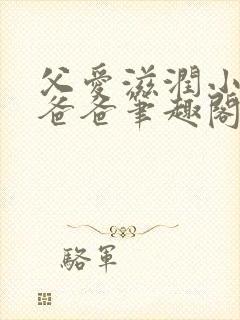 父愛滋潤小
爸爸筆趣閣
駱軍